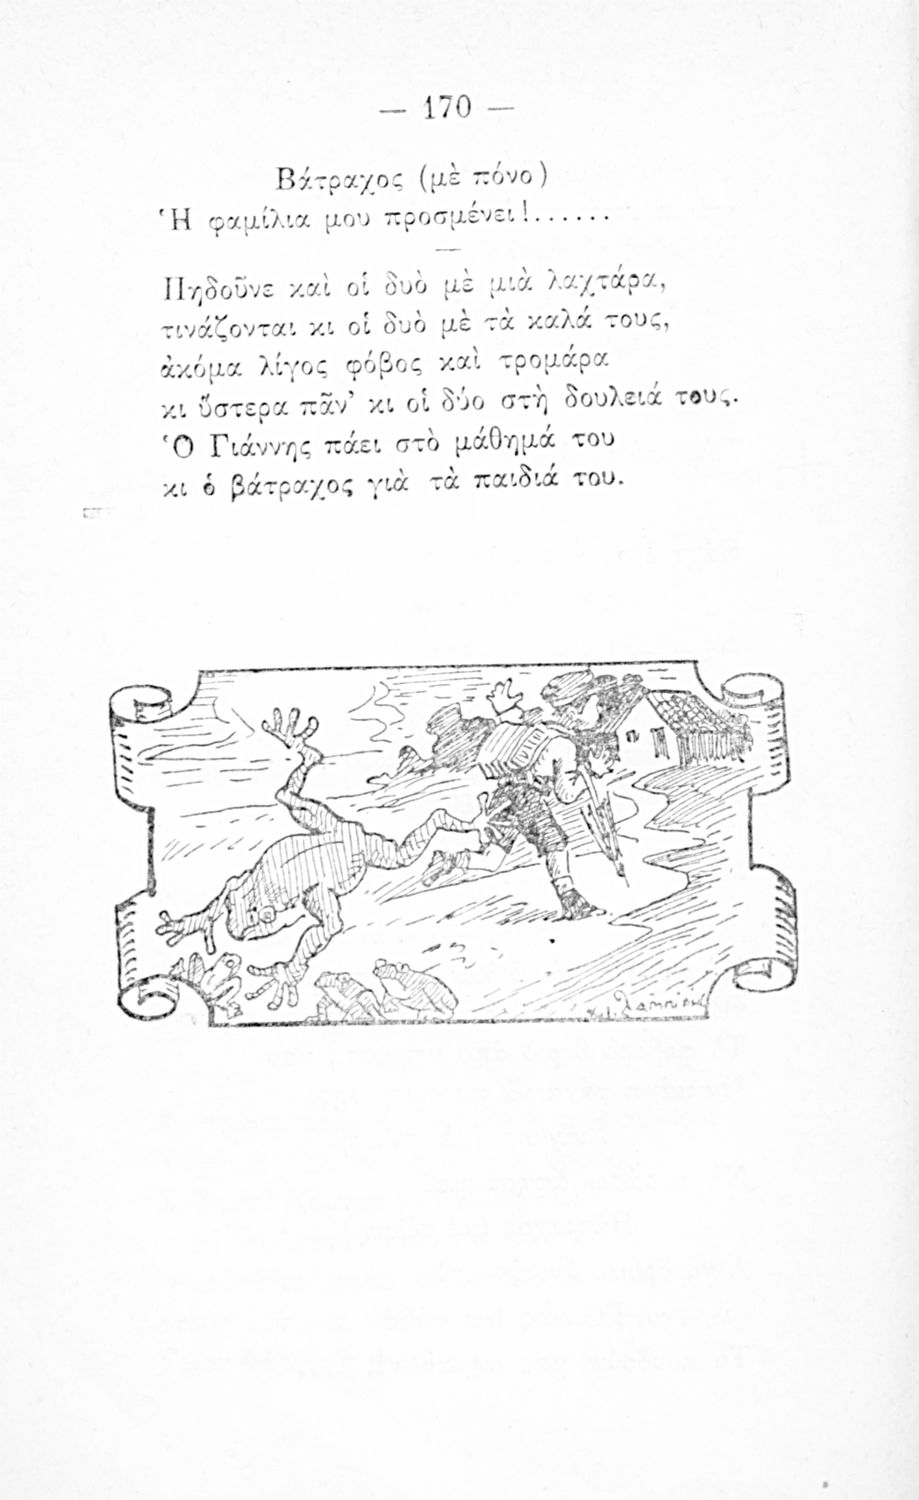 — 170 —
Βάτραχος (μὲ πόνο)
Ἡ φαμίλια μου προσμένει!......
Πηδοῦνε καὶ οἱ δυὸ μὲ μιὰ λαχτάρα,
τινάζονται κι οἱ δυὸ μὲ τὰ καλά τους,
ἀκόμα λίγος φόβος καὶ τρομάρα
κι ὕστερα πᾶν’ κι οἱ δύο στὴ δουλειά τους.
Ὁ Γιάννης πάει στὸ μάθημά του
κι ὁ βάτραχος γιὰ τὰ παιδιά του.